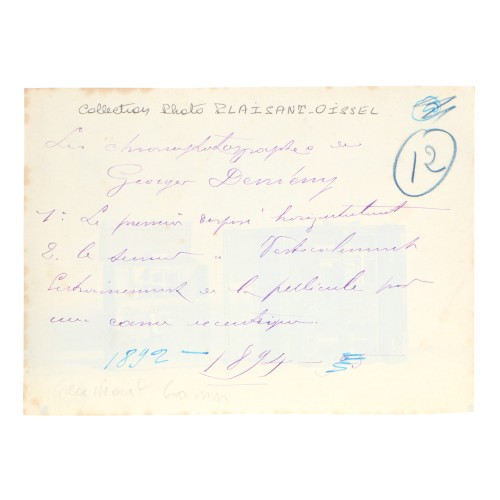 Collection Photo PLAISANT-OISSEL
12
Les chronophotographes de
Georges Demény
1º Le premier disposé horizontalement
2. le second " Verticalement
Entrainement de la pellicule par
une came excentrique.
1892 - 1894 -